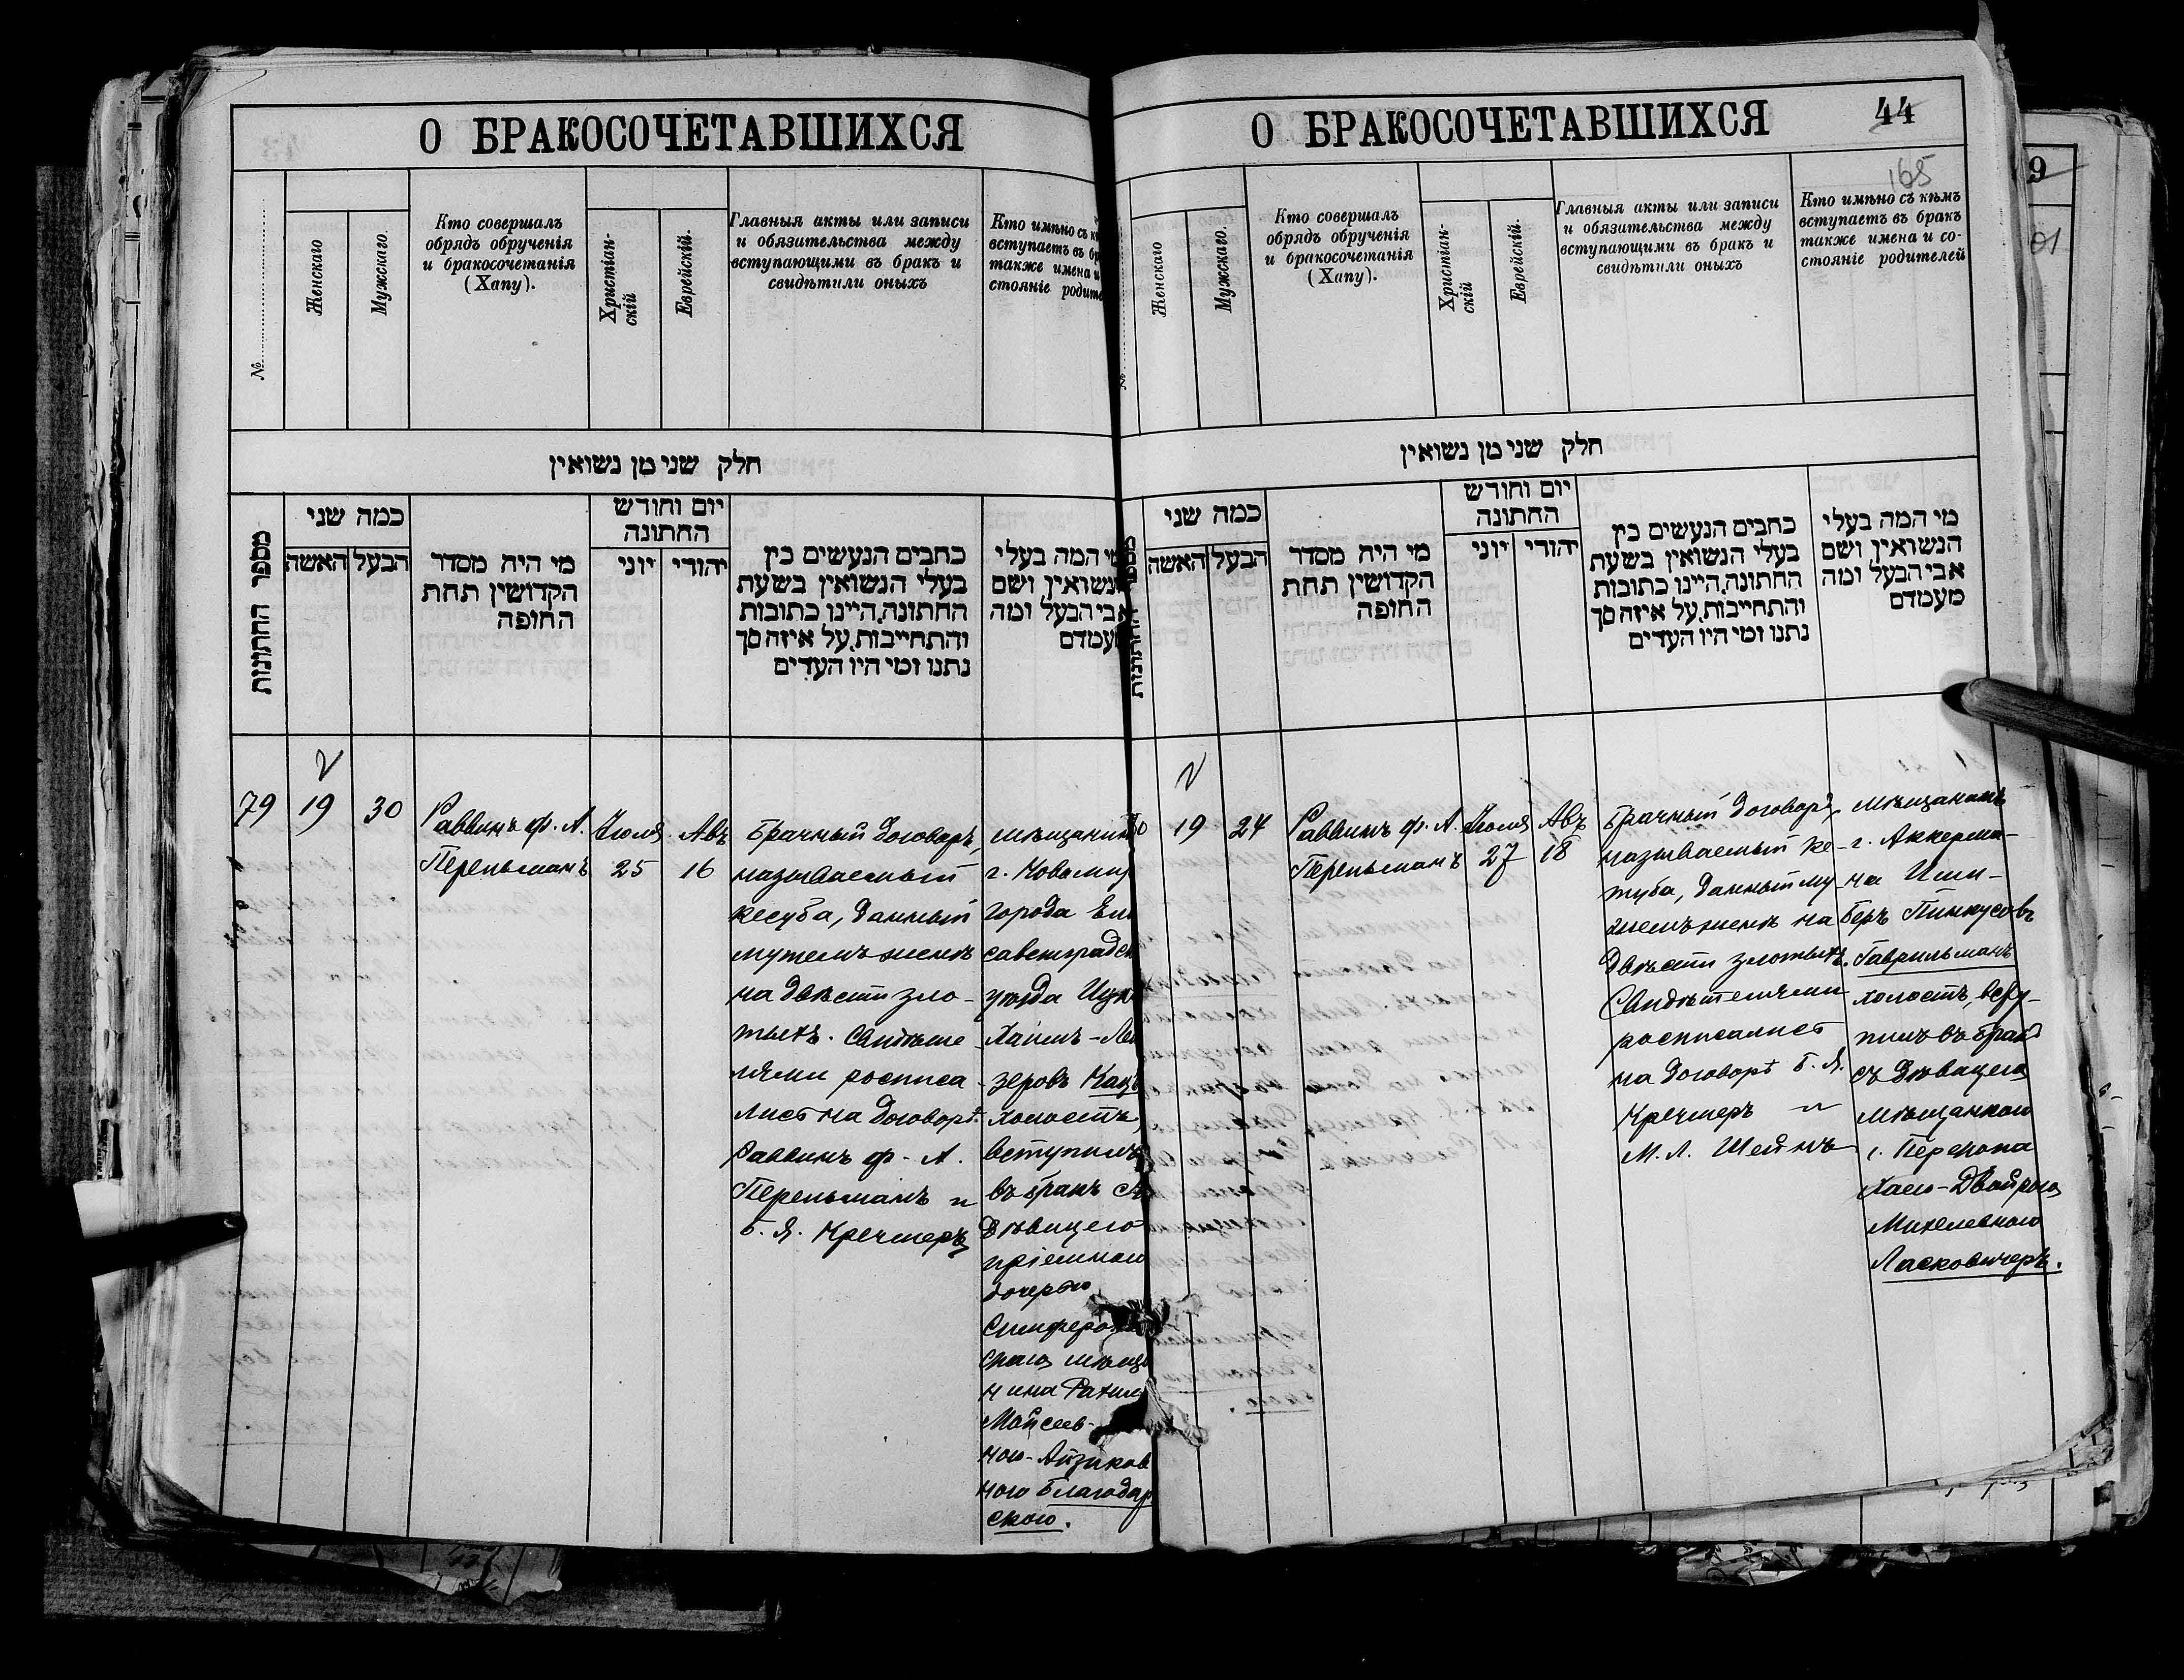 О БРАКОСОЧЕТАВШИХСЯ
№
Женскаго
Мужскаго.
Кто совершалъ
обрядъ обрученія
и бракосочетанія
(Хапу).
Христіан-
скій
Еврейскій.
Главныя акты или записи
и обязательства между
вступающими въ бракъ и
свидѣтили оныхъ
Кто имѣно съ
вступаетъ въ
также имена и
стояніе
חלק שני מן נשואין
מספר החתונות
כמה שני
האשה
הבעל
מי היה מסדר
הקדושין תחת
החופה
יום וחודש
החתונה
יוני
יהודי
כתבים הנעשים בין
בעלי הנשואין בשעת
החתונה, היינו כתובות
והתחייבות, על איזה סך
נתנו ומי היו העדים
מי המה בעלי
הנשואין ושם
אבי הבעל ומה
מעמדם
79
19
30
Раввинъ ф. А.
Перельманъ
Іюля
25
Авъ
16
Брачный договоръ,
называемый
кесуба, данный
мужемъ женѣ
на двѣсти зло-
тыхъ. Свидѣте-
лями росписа-
лись на договорѣ
Раввинъ ф. А.
Перельманъ и
Б. Я. Кречмеръ
мѣщанин
г. Новомир
города Ели
саветградск
уѣзда
Хаимъ-Лей
зеровъ Кацъ
холостъ,
вступилъ
въ бракъ съ
дѣвицею
пріемною
дочерью
Симферопол
скаго мѣща
нина Рахиль
Мойсеев-
ною-Айзиков
ною Благодар
скою.
О БРАКОСОЧЕТАВШИХСЯ
44
165
№
Женскаго
Мужскаго.
Кто совершалъ
обрядъ обрученія
и бракосочетанія
(Хапу).
Христіан-
скій
Еврейскій.
Главныя акты или записи
и обязательства между
вступающими въ бракъ и
свидѣтили оныхъ
Кто имѣно съ кѣмъ
вступаетъ въ бракъ
также имена и со-
стояніе родителей
חלק שני מן נשואין
כמה שני
האשה
הבעל
מי היה מסדר
הקדושין תחת
החופה
יום וחודש
החתונה
יוני
יהודי
כתבים הנעשים בין
בעלי הנשואין בשעת
החתונה, היינו כתובות
והתחייבות, על איזה סך
נתנו ומי היו העדים
מי המה בעלי
הנשואין ושם
אבי הבעל ומה
מעמדם
19
24
Раввинъ ф. А.
Перельманъ
Іюля
27
Авъ
18
Брачный договоръ,
называемый ке-
туба, данный му-
жемъ женѣ на
двѣсти злотыхъ.
Свидѣтелями
росписались
на договорѣ Б. Я.
Кречмеръ и
М. Л. Шейнъ
мѣщанинъ
г. Аккерма-
на Ици-
Беръ Пинкусовъ
Гаврильманъ
холостъ, всту-
пилъ въ бракъ
съ дѣвицею
мѣщанкою
г. Перекопа
Хаею-Двойрою
Михелевною
Ласковичеръ.
9
01